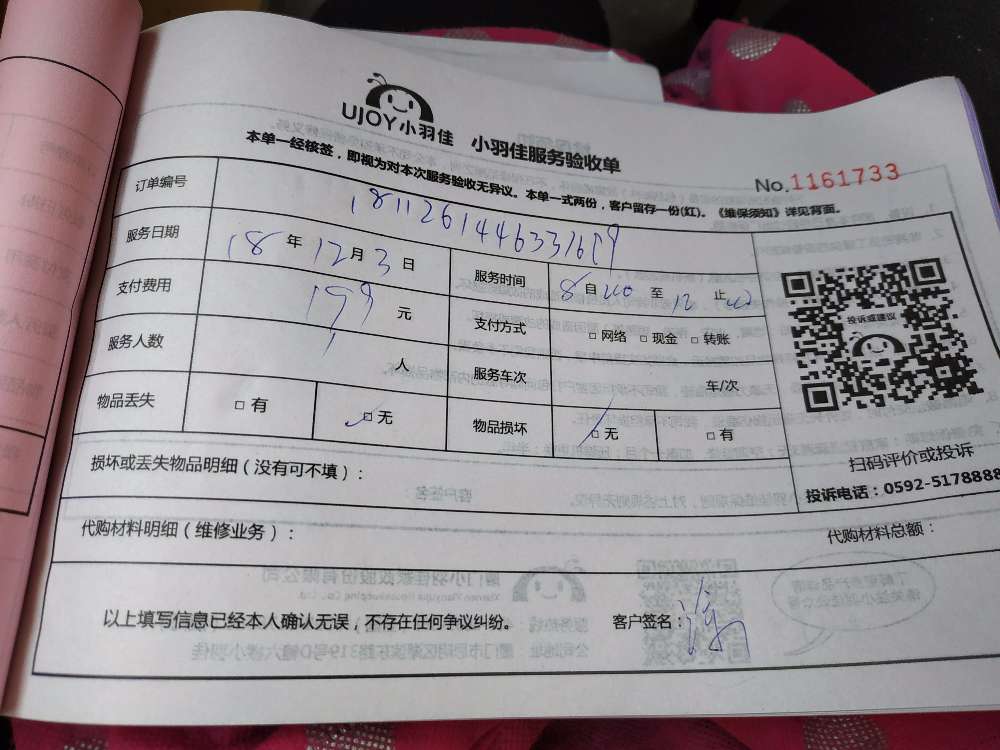 UJOY小羽佳 小羽佳服务验收单
No.1161733
本单一经核签，即视为对本次服务验收无异议。本单一式两份，客户留存一份(红)。《维保须知》详见背面。
订单编号
服务日期 18 年 12 月 3 日 服务时间 8 自 至 12 止
支付费用 199 元 支付方式 □ 网络 □ 现金 □ 转账
服务人数 1 人 服务车次 车/次
物品丢失 □ 有 □ 无 物品损坏 □ 无 □ 有
投诉或建议
扫码评价或投诉
投诉电话：0592-5178888
损坏或丢失物品明细（没有可不填）：
代购材料明细（维修业务）： 代购材料总额：
以上填写信息已经本人确认无误，不存在任何争议纠纷。 客户签名：